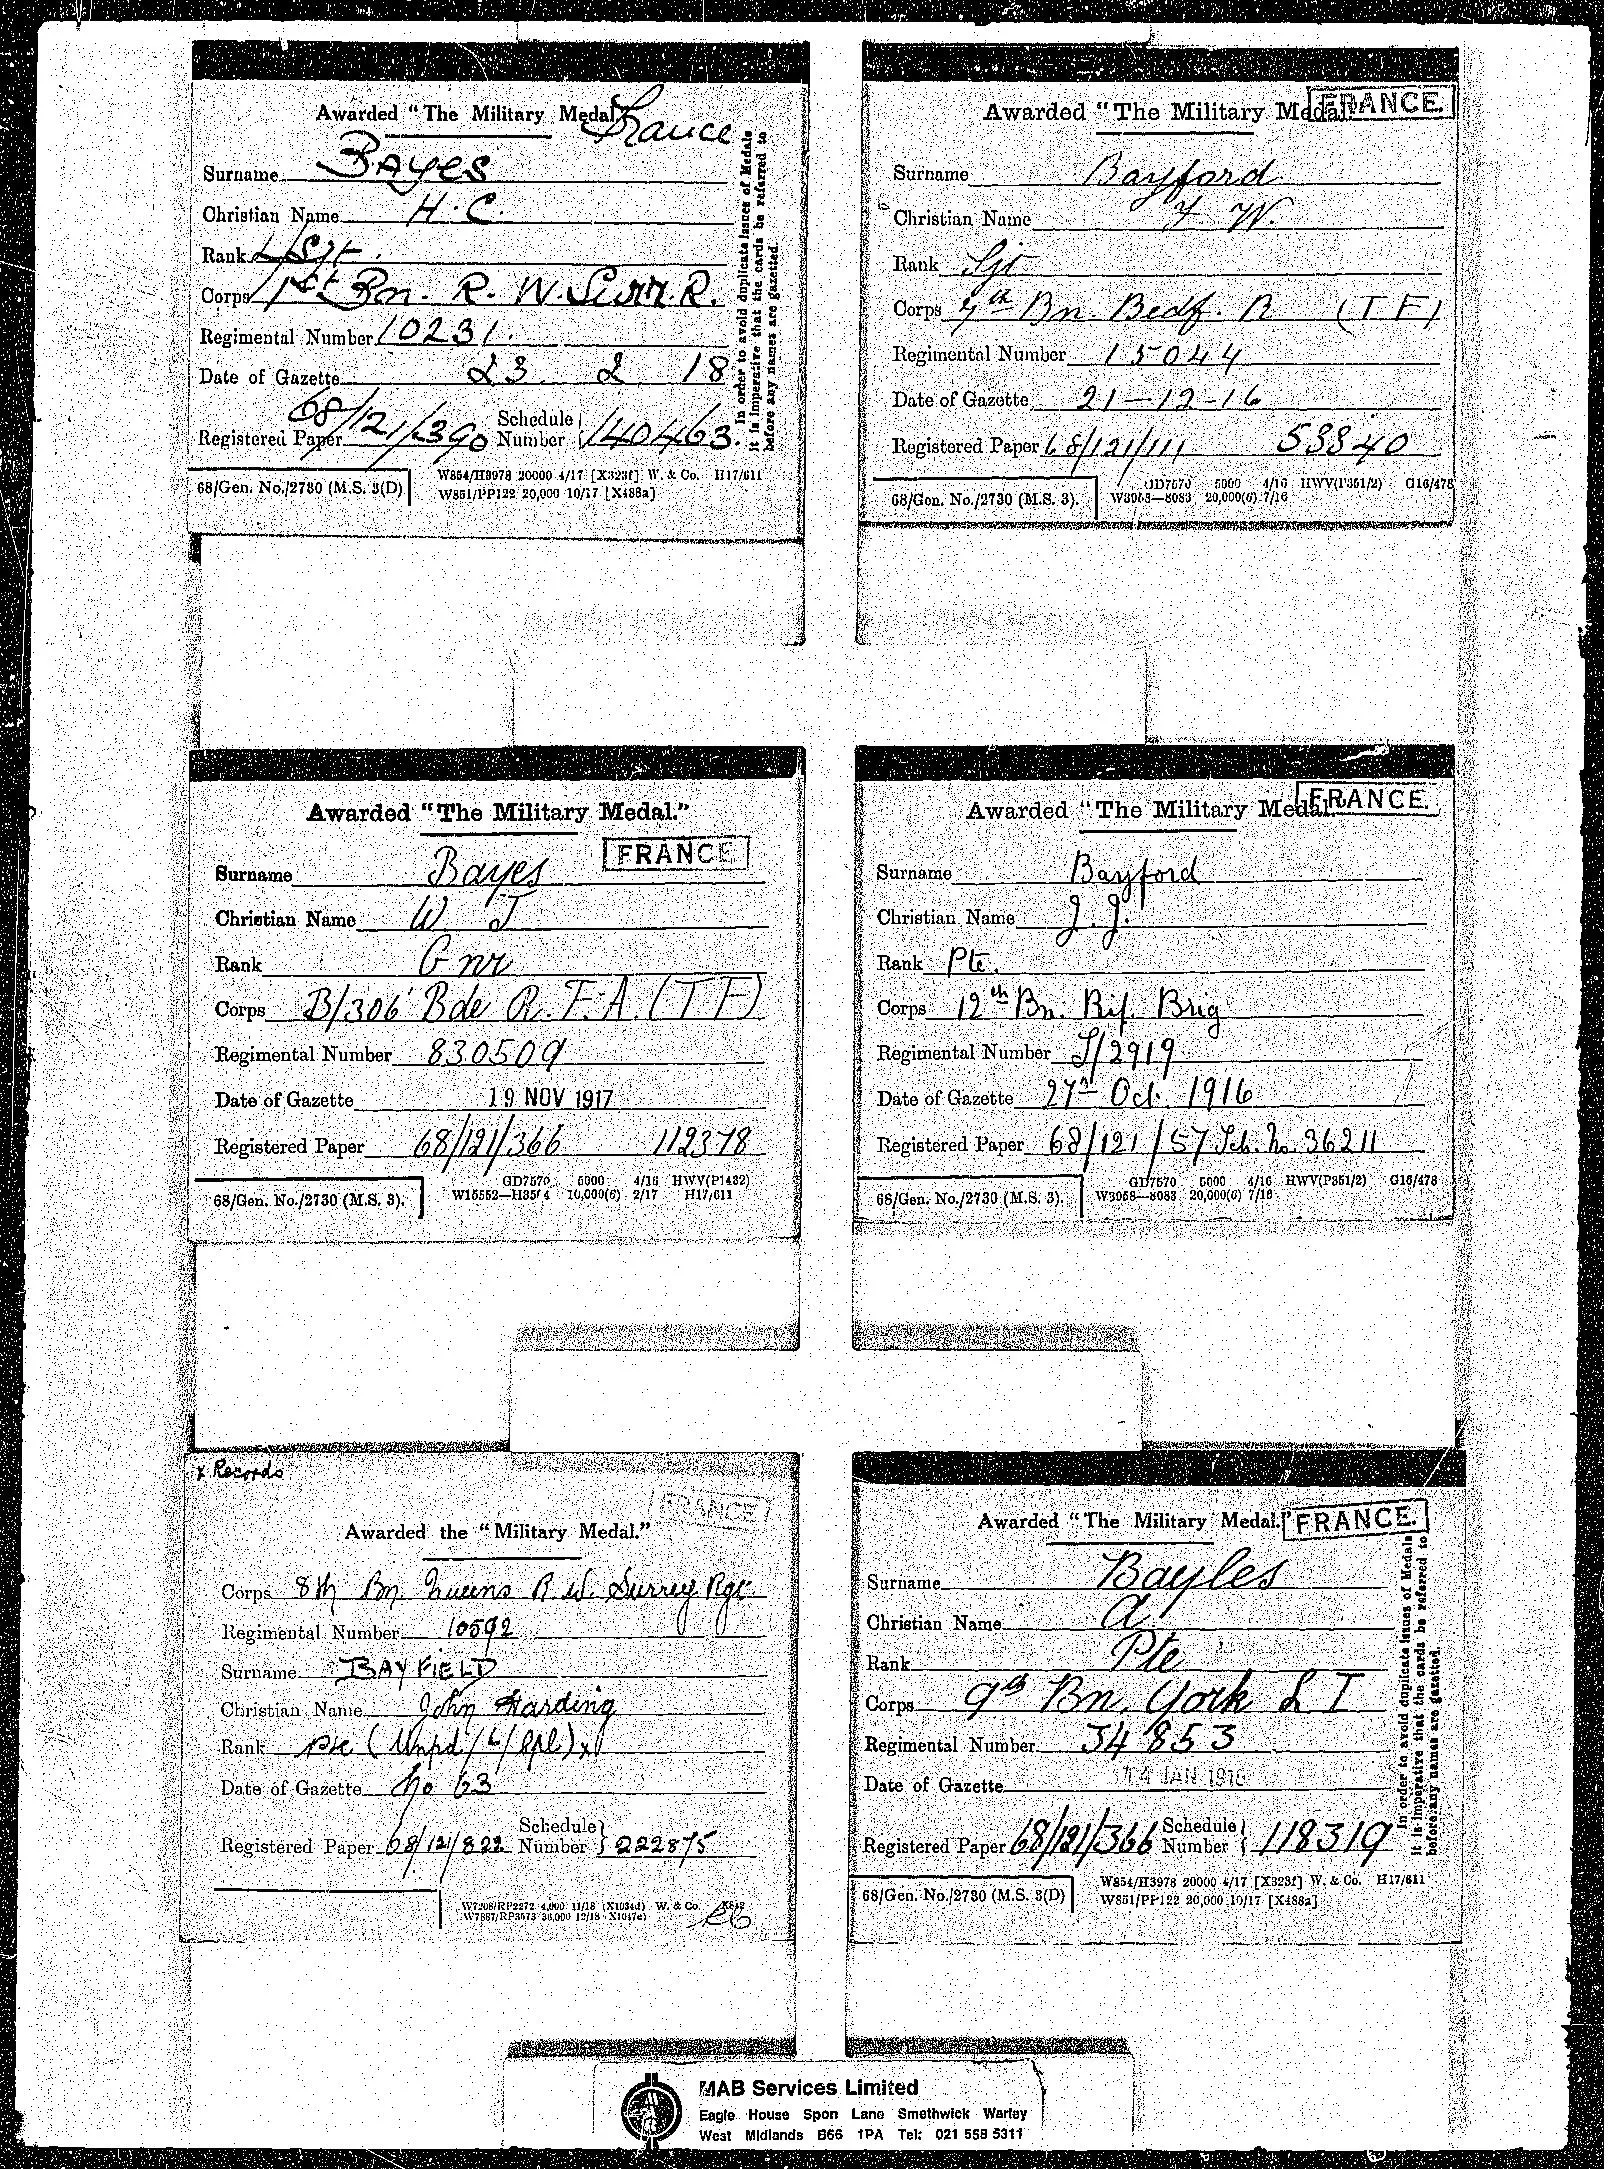 Awarded "The Military Medal
France
Surname BAYES
Christian Name H. C.
Rank L/Sjt.
Corps 1st Bn. R. W. Surr. R.
Regimental Number 10231.
Date of Gazette 23 2 18
Registered Paper 68/121/390 Schedule Number 140463.
In order to avoid duplicate issues of Medals
it is imperative that the cards be referred to
before any names are gazetted.
68/Gen. No./2730 (M.S. 3(D)
W854/H3978 20000 4/17 [X323f] W. & Co. H17/611
W851/PP122 20,000 10/17 [X488a]
Awarded "The Military Medal."
FRANCE.
Surname Bayford
Christian Name F W.
Rank Sjt
Corps 7th Bn. Bedf. R (TF)
Regimental Number 15044
Date of Gazette 21-12-16
Registered Paper 68/121/111 53340
68/Gen. No./2730 (M.S. 3).
GD7570 5000 4/16 HWV(P351/2) G16/478
W3068—8083 20,000(6) 7/16
Awarded "The Military Medal."
FRANCE
Surname Bayes
Christian Name W J
Rank Gnr
Corps B/306 Bde R.F.A. (TF)
Regimental Number 830509
Date of Gazette 19 NOV 1917
Registered Paper 68/121/366 112378
68/Gen. No./2730 (M.S. 3).
GD7570 5000 4/16 HWV(P1432)
10,000(6) 2/17 H17/611
Awarded "The Military Medal.
FRANCE.
Surname Bayford
Christian Name J. J.
Rank Pte.
Corps 12th Bn. Rif. Brig
Regimental Number S/2919
Date of Gazette 27th Oct. 1916
Registered Paper 68/121/57 Sch. No. 36211
68/Gen. No./2730 (M.S. 3).
GD7570 5000 4/16 HWV(P351/2) G16/478
W3068—8083 20,000(6) 7/16
x Records
FRANCE
Awarded the "Military Medal."
Corps 8th Bn. Queens R. W. Surrey Rgt
Regimental Number 10592
Surname BAYFIELD
Christian Name John Harding
Rank Pte (Unpd/L/Cpl) x
Date of Gazette No 63
Registered Paper 68/121/822 Schedule Number 222875
W7208/RP2272 4,000 11/18 (X1034d) W. & Co.
W7887/RP3573 36,000 12/18 (X1047e)
Awarded "The Military Medal."
FRANCE.
Surname Bayles
Christian Name A
Rank Pte
Corps 9th Bn. York L I
Regimental Number 34853
Date of Gazette 14 JAN 1918
Registered Paper 68/121/366 Schedule Number 118319
In order to avoid duplicate issues of Medals
it is imperative that the cards be referred to
before any names are gazetted.
68/Gen. No./2730 (M.S. 3(D)
W854/H3978 20000 4/17 [X323f] W. & Co. H17/611
W851/PP122 20,000 10/17 [X488a]
MAB Services Limited
Eagle House Spon Lane Smethwick Warley
West Midlands B66 1PA Tel: 021 553 5311